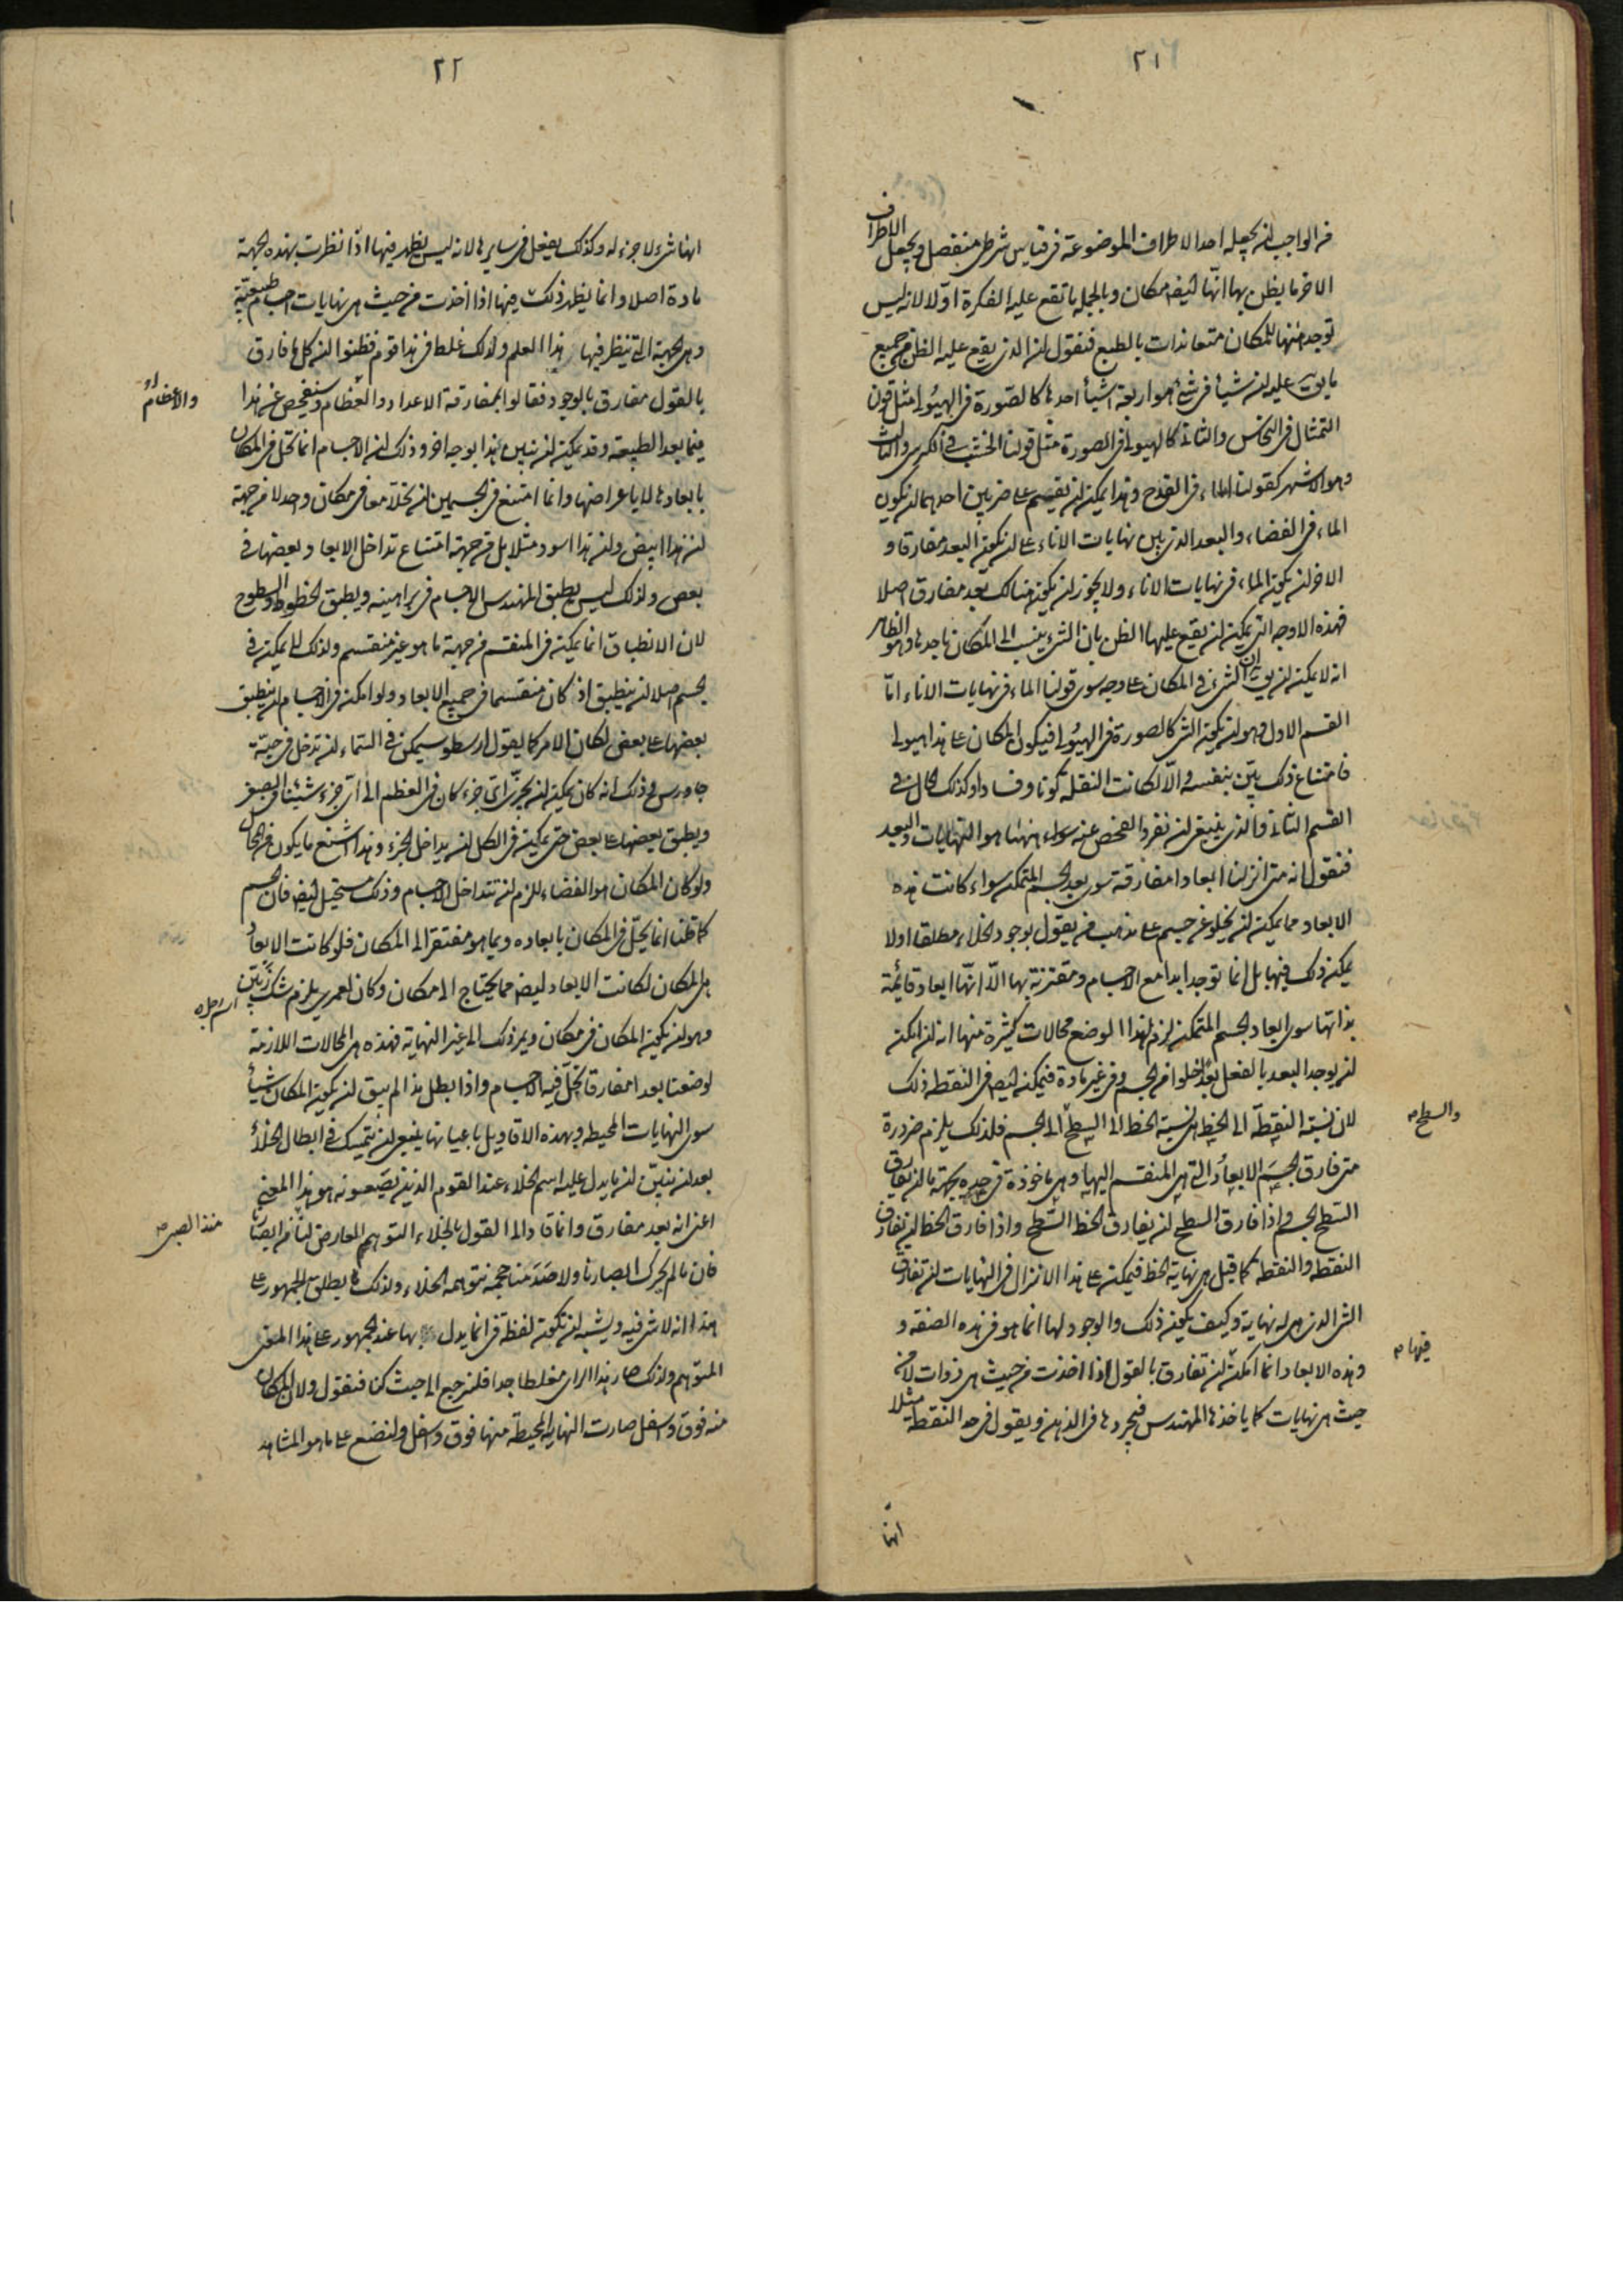 ٢١
من الواجب ان يجعله احد الاطراف الموضوعة فى قياس شرطى منفصل ويجعل الاطراف
الاخر ما يظن بها انها ايضا مكان وبالجملة ما تقع عليه الفكرة اولا لانه ليس
توجد منها للمكان متعاندات بالطبع فنقول ان الذى يقع عليه الظن من جميع
ما يق عليه ان شيأ فى شئ هو اربعة اشيأ احدها كالصورة فى الهيولى مثل قولن
التمثال فى النحاس والثانى كالهيولى فى الصورة مثل قولنا الخشب فى الكرسى والثالث
وهو الاشهر كقولنا الماء فى القدح وهذا يمكن ان يقسم على ضربين احدهما ان يكون
الماء فى الفضاء والبعد الذى بين نهايات الاناء على ان يكون البعد مفارقا و
الاخر ان يكون الماء فى نهايات الاناء ولا يجوز ان يكون هنالك بعد مفارق اصلا
فهذه الاوجه التى يمكن ان يقع عليها الظن بان الشئ ينسب الى المكان باحدها وهو الظاهر
انه لا يمكن ان يق ان الشئ فى المكان على وجه سوى قولنا الماء فى نهايات الاناء امّا
القسم الاول وهو ان يكون الشئ كالصورة فى الهيولى فيكون المكان على هذا هيولى
فامتناع ذلك بيّن بنفسه والّا لكانت النقلة كونا وفسادا وكذلك الحال فى
القسم الثانى والذى ينبغى ان نفرد الفحص عنه سواء ههنا هو النهايات والبعد
فنقول انه متى انزلنا ابعادا مفارقة سوى بعد الجسم المتمكن سواء كانت هذه
الابعاد مما يمكن ان يخلو عن جسم على مذهب من يقول بوجود الخلاء مطلقا اولا
يمكن ذلك فيها بل انما توجد ابدا مع الاجسام ومقترنة بها الّا انّها ابعاد قائمة
بذاتها سوى ابعاد الجسم المتمكن لزم لهذا الوضع محالات كثيرة منها انه ان امكن
ان يوجد البعد بالفعل بعدا خلوا من الجسم وفى غير مادة فيمكن ايضا فى النقطة ذلك
لان نسبة النقطة الى الخط هى نسبة الخط الى السطح الى الجسم فلذلك يلزم ضرورة
والسطح
متى فارق الجسم الابعاد التى هى المنقسم اليها وهى ماخوذة فى حده بجهة ما ان يفارق
السطح الجسم واذا فارق السطح ان يفارق الخط السّطح واذا فارق الخط ان تفارق
النقطة والنقطة كما قيل هى نهاية الخط فيمكن على هذا الانزال فى النهايات ان تفارق
الشئ الذى هى له نهاية وكيف يكون ذلك والوجود لها انما هو فى هذه الصفة و
فيها
وهذه الابعاد انما امكن ان تفارق بالقول اذا اخذت من حيث هى ذوات لا من
حيث هى نهايات كما ياخذها المهندس فيجردها فى الذهن ويقول فى حد النقطة مثلا
انها
٢٢
انها شئ لا جزء له وكذلك يفعل فى سايرها لانه ليس يظهر فيها اذا نظرت بهذه الجهة
مادة اصلا وانما يظهر ذلك فيها اذا اخذت من حيث هى نهايات اجسام طبيعيّة
وهى الجهة التى ينظر فيها هذا العلم ولذلك غلط فى هذا قوم فظنوا ان كل ما فارق
بالقول مفارق بالوجود فقالوا بمفارقة الاعداد والعظام وسنفحص عن هذا
والاعظام
فيما بعد الطبيعة وقد يمكن ان نبين هذا بوجه اخر وذلك ان الاجسام انما تحل فى المكان
بابعادها لا باعراضها وانما امتنع فى الجسمين ان يحلا معا فى مكان واحد لا من جهة
ان هذا ابيض وان هذا اسود مثلا بل من جهة امتناع تداخل الابعاد بعضها فى
بعض ولذلك ليس يطبق المهندس الاجسام فى براهينه ويطبق الخطوط والسطوح
لان الانطباق انما يمكن فى المنقسم من جهة ما هو غير منقسم ولذلك لا يمكن فى
الجسم اصلا ان ينطبق اذ كان منقسما فى جميع الابعاد ولو امكن فى الاجسام ان ينطبق
بعضها على بعض لكان الامر كما يقول ارسطو سيمكن فى السّماء ان تدخل فى حبّة
جاورس وذلك انه كان يمكن ان يجزّى اىّ جزء كان من العظم الى اىّ جزء شئنا من الصغر
ويطبق بعضها على بعض حتى يمكن فى الكل ان يداخل الجزء وهذا اشنع ما يكون من المحال
ولو كان المكان هو الفضاء للزم ان تتداخل الاجسام وذلك مستحيل ايضا فان الجسم
كما قلنا انما يحلّ فى المكان بابعاده وبما هو مفتقر الى المكان فلو كانت الابعاد
هى المكان لكانت الابعاد ايضا مما يحتاج الى مكان وكان لعمرى يلزم شك زينن
وهو ان يكون المكان فى مكان ويمر ذلك الى غير النهاية فهذه هى المحالات اللازمة
لوضعنا بعدا مفارقا تحلّ فيه الاجسام واذا بطل هذا لم يبق ان يكون المكان شيأ
سوى النهايات المحيطة وبهذه الاقاويل باعيانها ينبغى ان يتمسك فى ابطال الخلأ
بعد ان نبيّن ان ما يدل عليه اسم الخلاء عند القوم الذين يضعونه هو هذا المعنى
اعنى انه بعد مفارق وانما قاد الى القول بالخلاء التوهم العارض لنا من الصبا
منذ الصبى
فان ما لم يحرك ابصارنا ولا صدمنا حجمه نتوهمه الخلاء ولذلك ما يطلق الجمهور على
هذا انه لا شئ فيه ويشبه ان تكون لفظة فى انما يدل بها عند الجمهور على هذا المعنى
المتوهم ولذلك صار هذا الراى مغلطا جدا فلنرجع الى حيث كنا فنقول ولان المكان
منه فوق واسفل صارت النهاية المحيطة منها فوق واسفل ولنضع على ما هو المشاهد